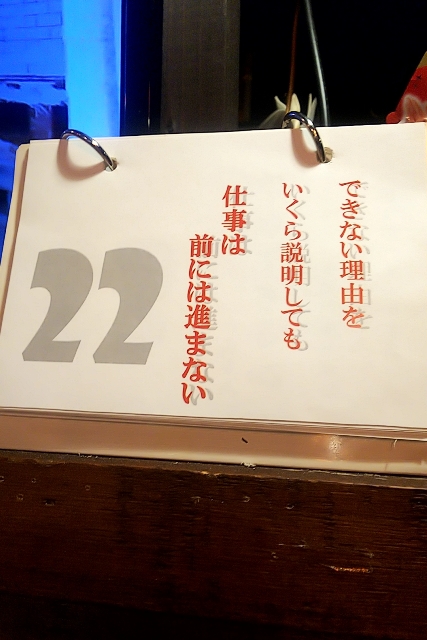 できない理由を
いくら説明しても
仕事は
前には進まない
22